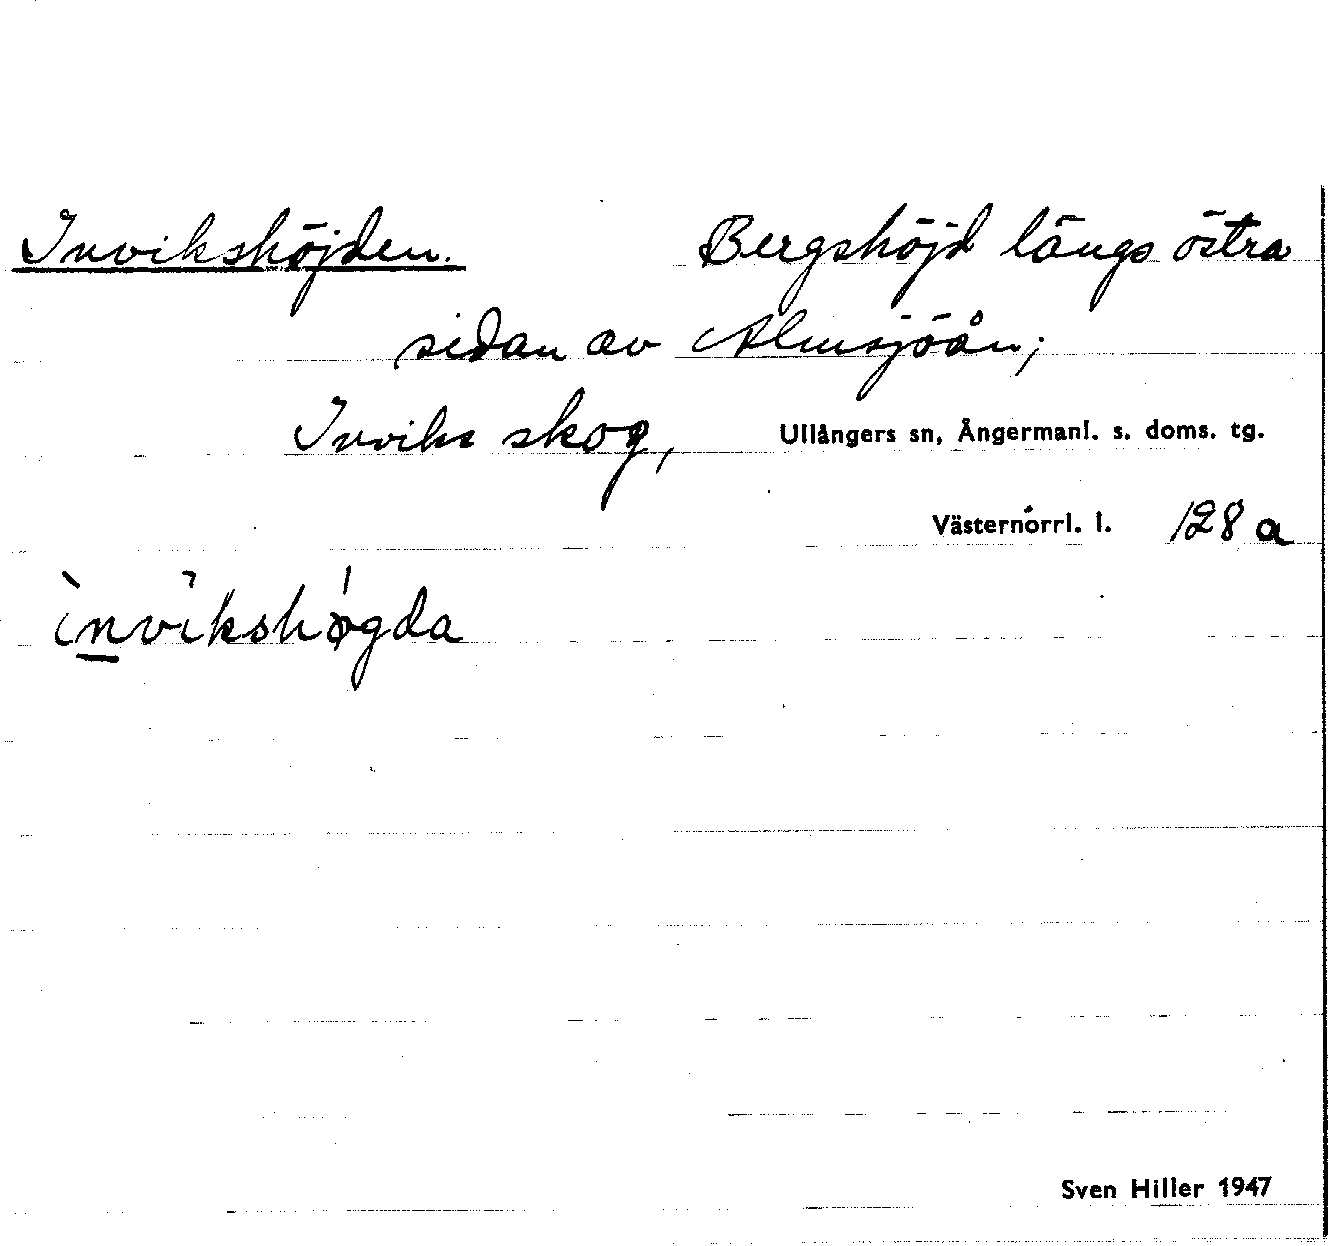 Invikshöjden. Bergshöjd längs östra
sidan av Almsjöån;
Inviks skog, Ullångers sn, Ångermanl. s. doms. tg.
Västernorrl. l. 128 a
ìnvikshø̀gda
Sven Hiller 1947